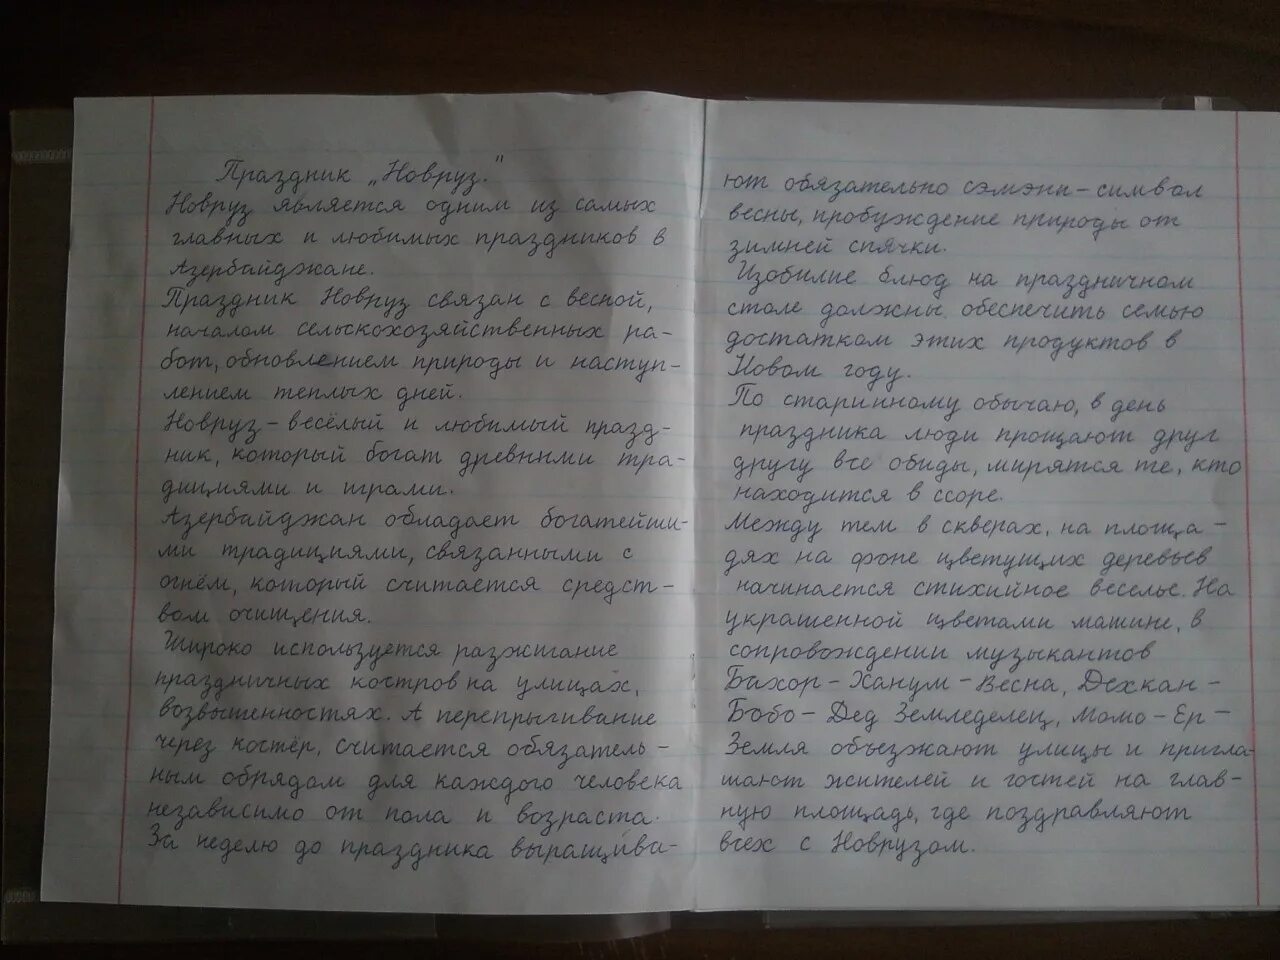 Праздник „Новруз."
Новруз является одним из самых
главных и любимых праздников в
Азербайджане.
Праздник Новруз связан с весной,
началом сельскохозяйственных ра-
бот, обновлением природы и наступ-
лением теплых дней.
Новруз - весёлый и любимый празд-
ник, который богат древними тра-
дициями и играми.
Азербайджан обладает богатейши-
ми традициями, связанными с
огнём, который считается средст-
вом очищения.
Широко используется разжигание
праздничных костров на улицах,
возвышенностях. А перепрыгивание
через костёр, считается обязатель-
ным обрядом для каждого человека
независимо от пола и возраста.
За неделю до праздника выращива-
ют обязательно сэмэни - символ
весны, пробуждение природы от
зимней спячки.
Изобилие блюд на праздничном
столе должны обеспечить семью
достатком этих продуктов в
Новом году.
По старинному обычаю, в день
праздника люди прощают друг
другу все обиды, мирятся те, кто
находится в ссоре.
Между тем в скверах, на площа-
дях на фоне цветущих деревьев
начинается стихийное веселье. На
украшенной цветами машине, в
сопровождении музыкантов
Бахор - Ханум - Весна, Дехкан -
Бобо - Дед Земледелец, Момо - Ер -
Земля объезжают улицы и пригла-
шают жителей и гостей на глав-
ную площадь, где поздравляют
всех с Новрузом.